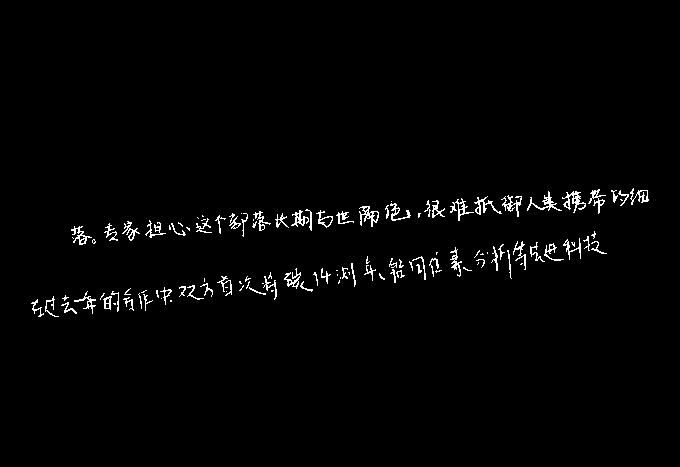 落。专家担心这个部落长期与世隔绝,很难抵御人类携带的细
在过去一年的合作中,双方首次将碳14测年、铅同位素分析等先进科技